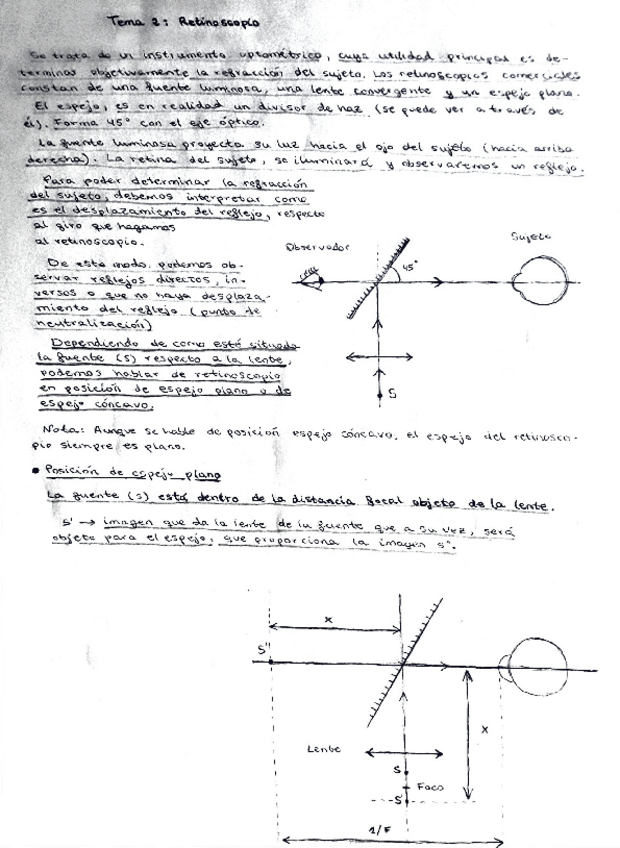 Tema 2: Retinoscopio
Se trata de un instrumento optométrico, cuya utilidad principal es de-
terminar objetivamente la refracción del sujeto. Los retinoscopios comerciales
constan de una fuente luminosa, una lente convergente y un espejo plano.
El espejo, es en realidad un divisor de haz (se puede ver a través de
él). Forma 45° con el eje óptico.
La fuente luminosa proyecta su luz hacia el ojo del sujeto (hacia arriba
derecha). La retina del sujeto, se iluminará y observaremos un reflejo.
Para poder determinar la refracción
del sujeto, debemos interpretar como
es el desplazamiento del reflejo, respecto
al giro que hagamos
al retinoscopio.
De este modo, podemos ob-
servar reflejos directos, in-
versos o que no haya desplaza-
miento del reflejo (punto de
neutralización)
Dependiendo de como esté situada
la fuente (S) respecto a la lente,
podemos hablar de retinoscopio
en posición de espejo plano o de
espejo cóncavo.
Observador
Sujeto
45°
S
Nota: Aunque se hable de posición espejo cóncavo, el espejo del retinosco-
pio siempre es plano.
• Posición de espejo plano
La fuente (S) está dentro de la distancia focal objeto de la lente.
S' → imagen que da la lente de la fuente que a su vez, será
objeto para el espejo, que proporciona la imagen S".
x
S"
x
Lente
S
Foco
S'
1/F